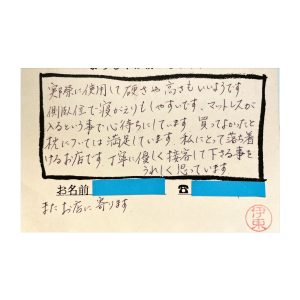 実際に使用して硬さや高さもいいようです
側臥位で寝がえりもしやすいです、マットレスが
入るという事で心待ちにしています 買ってよかったと
枕については満足しています 私にとって落ち着
けるお店です 丁寧に優しく接客して下さる事を
うれしく思っています
お名前 ☎
またお店に寄ります
伊東